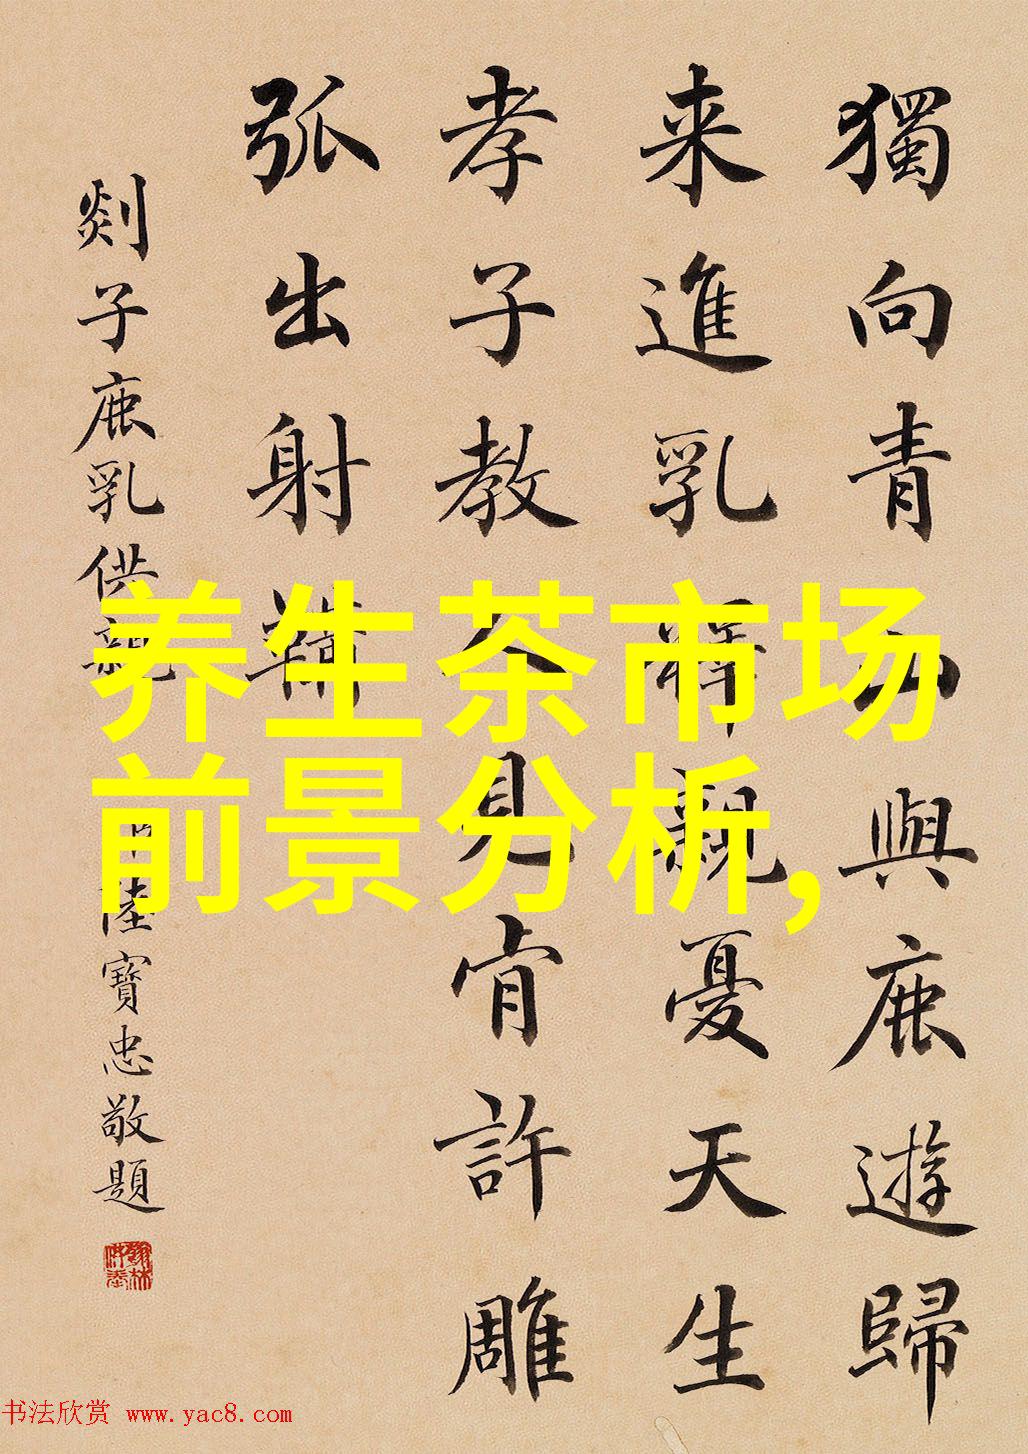 獨向青山與鹿遊歸
来進乳釋親憂天生
孝子教人見肯許雕
弧出射
剡子鹿乳供親
陸寶忠敬題
翰林供奉
养生茶市场
前景分析,
书法欣赏 www.yac8.com